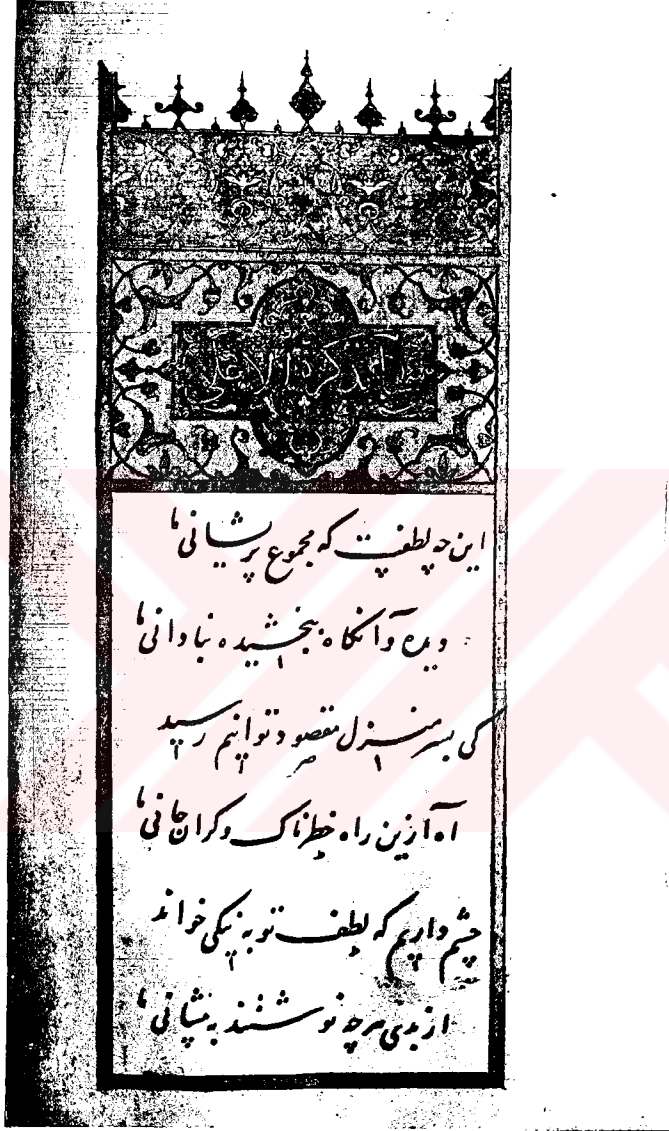 الاعلی
این چه لطفست که مجموع پریشانی ما
دیده و آنکاه ببخشیده بنادانی ما
کی بسر منزل مقصود توانیم رسید
اه ازین راه خطرناک و کران جانی ما
چشم داریم که لطف تو به نیکی خواند
از بدی هرچه نوشتند به پیشانی ما